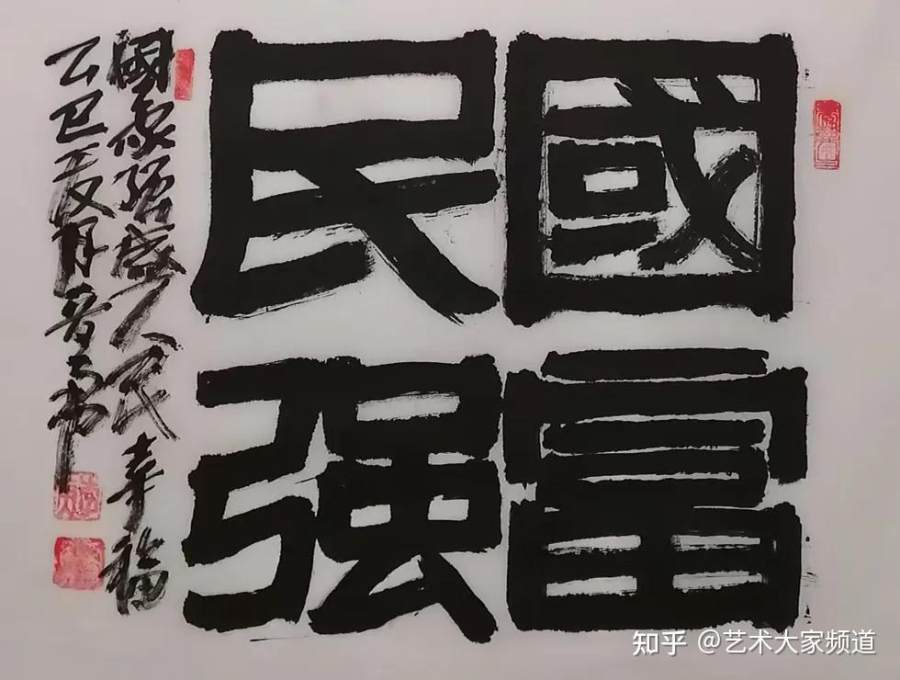 國富
民强
國家强盛人民幸福
乙巳 月
知乎 @艺术大家频道